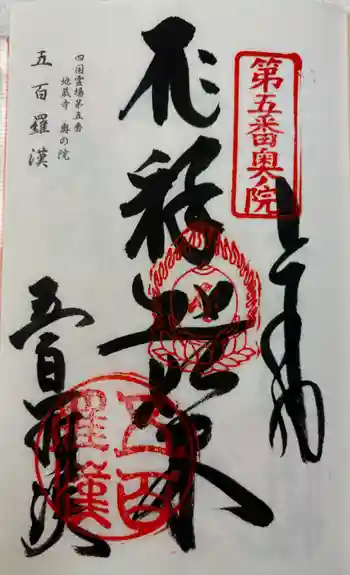 第五番奥ノ院
奉拝
釈迦如来
五百羅漢
五百羅漢
四国霊場第五番
地蔵寺 奥の院
五百羅漢